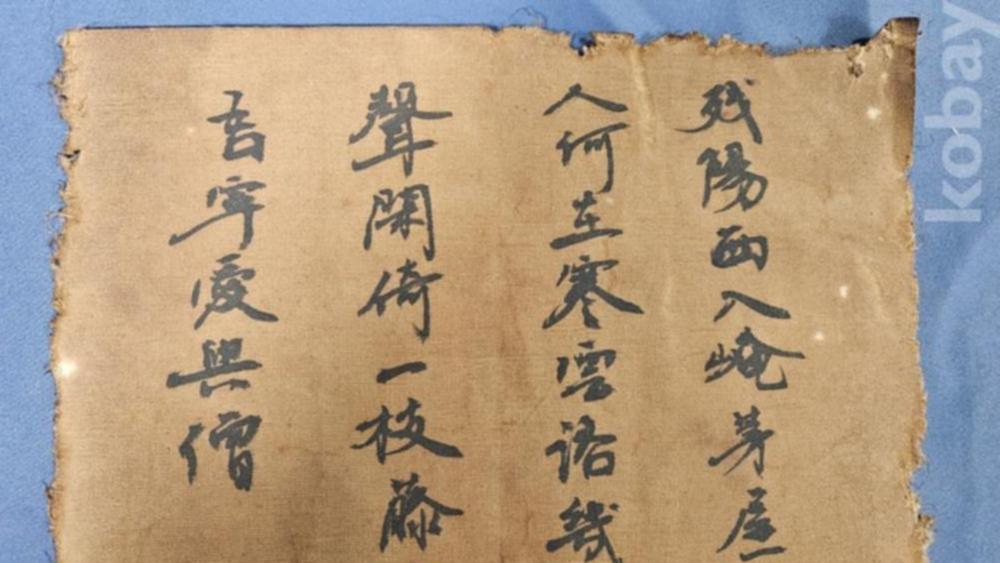 残陽西入崦茅屋
人何在寒雲路幾
聲閑倚一枝藤
吾寧愛與僧
kobay